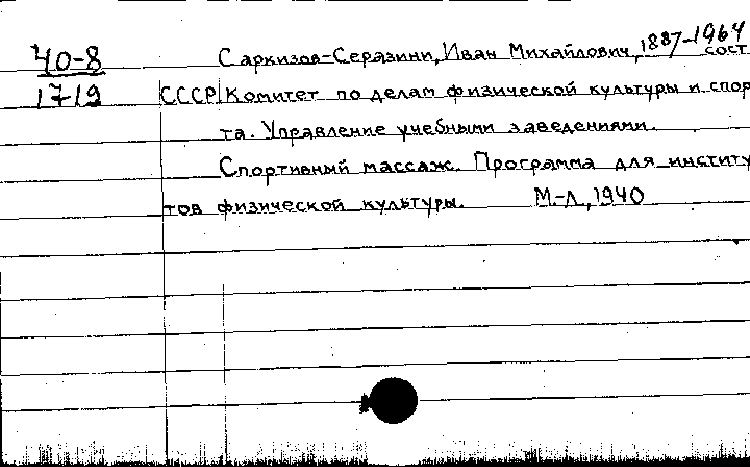 40-8 Саркизов-Серазини, Иван Михайлович, 1887-1964
сост
1719 СССР Комитет по делам физической культуры и спор
та. Управление учебными заведениями.
Спортивный массаж. Программа для институ
тов физической культуры. М.-Л, 1940